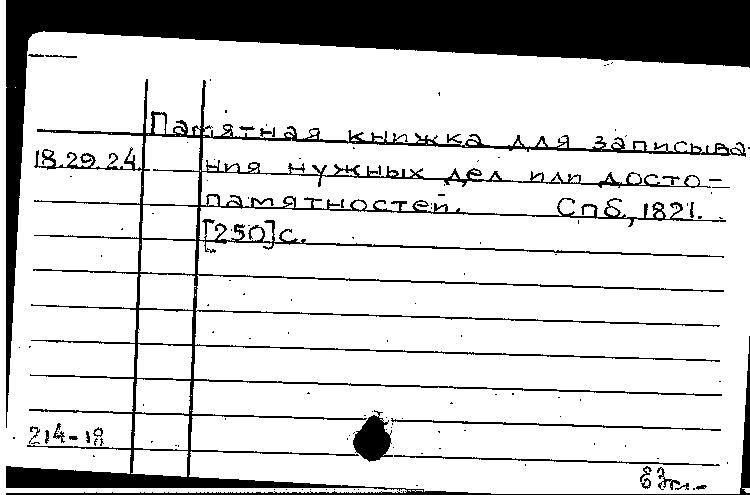 Памятная книжка для записыва-
18.29.2.4. ния нужных дел или досто-
памятностей. Спб., 1821.
[250]с.
214-18